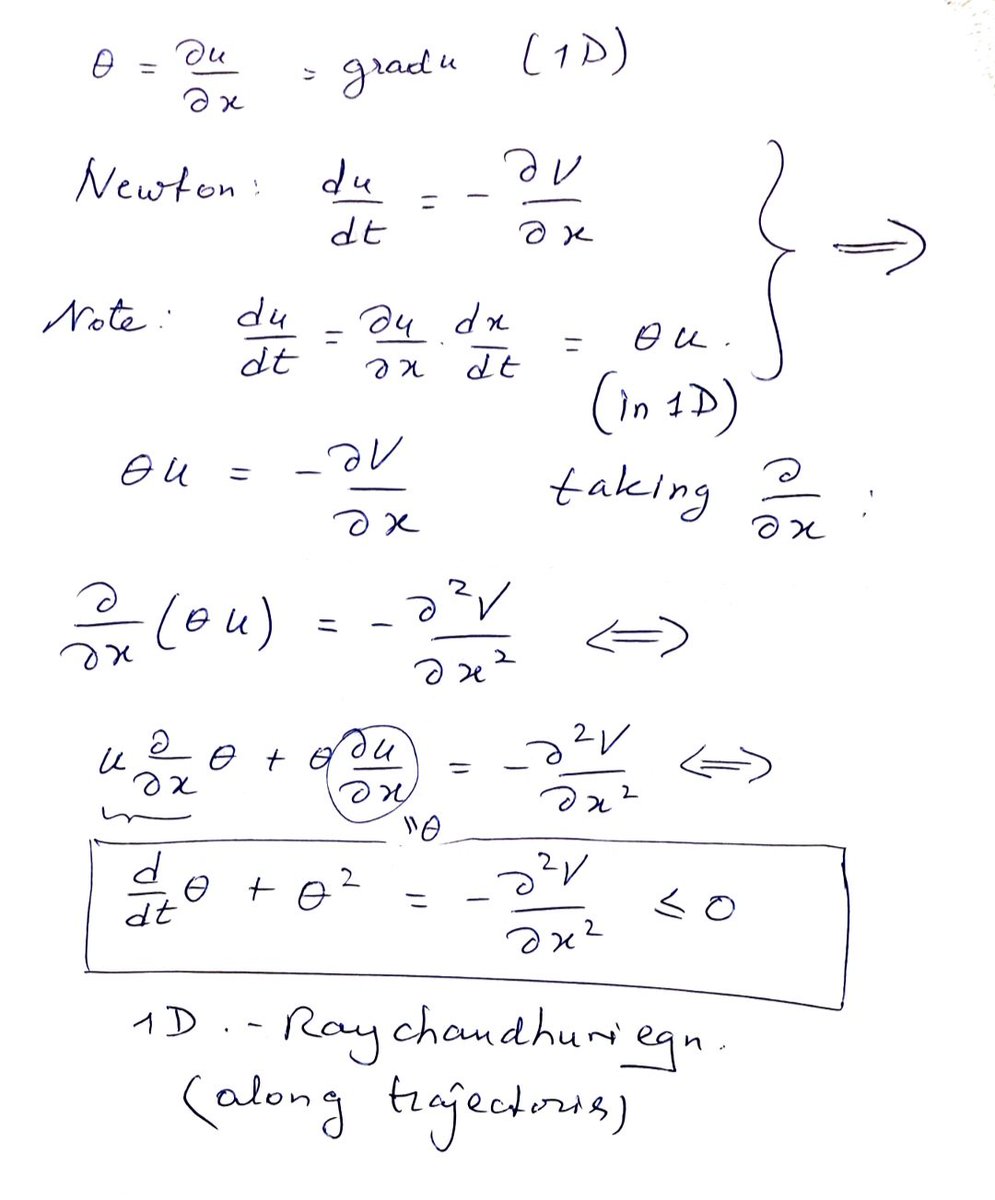 θ = ∂u/∂x = grad u (1D)
Newton: du/dt = - ∂V/∂x } ⟹
Note: du/dt = ∂u/∂x · dx/dt = θu.
(in 1D)
θu = - ∂V/∂x taking ∂/∂x :
∂/∂x (θu) = - ∂²V/∂x² ⟺
u ∂/∂x θ + θ ∂u/∂x = - ∂²V/∂x² ⟺
"θ
d/dt θ + θ² = - ∂²V/∂x² ≤ 0
1D.- Raychandhuri eqn.
(along trajectoris)